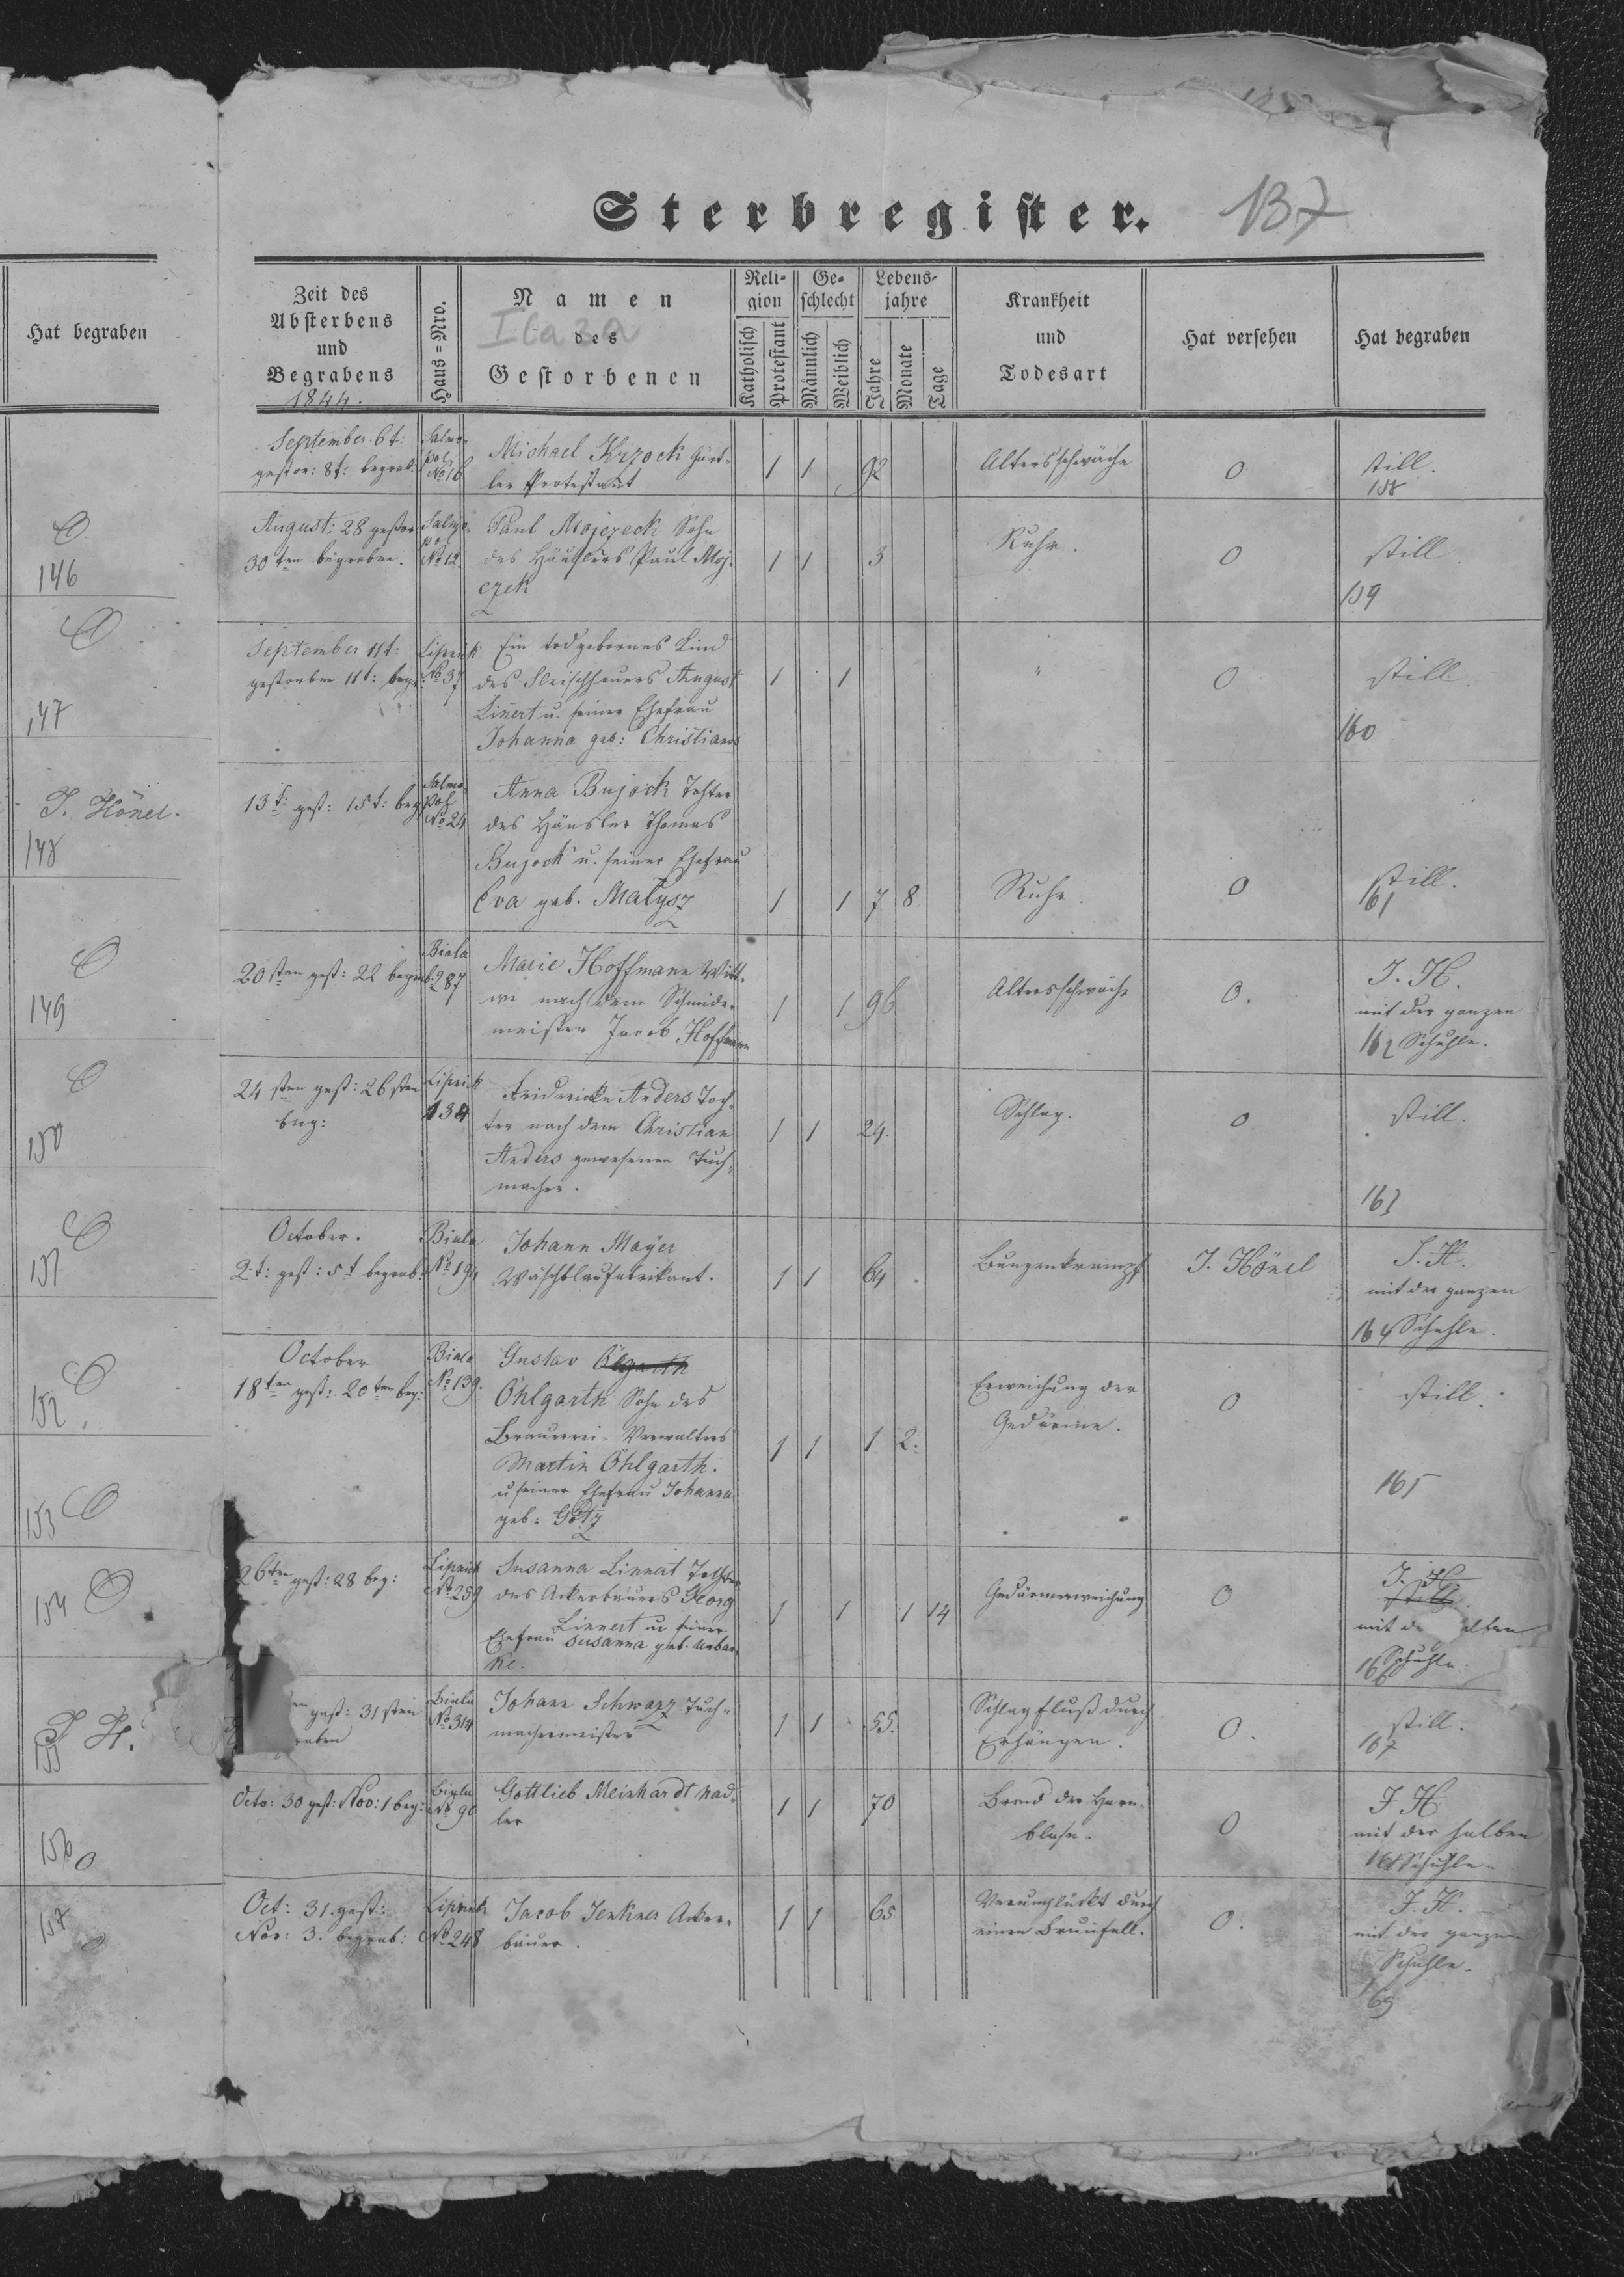 Hat begraben
146
147
J. Hönel.
148
149
150
151
152
153
154
J. H.
155
156
157
Sterbregister.
137
Zeit des
Absterbens
und
Begrabens
1844.
Haus-Nro.
Namen
des
Gestorbenen
Religion
Katholisch
Protestant
Geschlecht
Männlich
Weiblich
Lebensjahre
Jahre
Monate
Tage
Krankheit
und
Todesart
Hat versehen
Hat begraben
September 6t:
gestor: 8t: begrab:
Salmo-
pol
No 16
Michael Krzock Gürt-
ler Protestant
1 1 92
Altersschwäche
0
still.
158
August: 28 gestor:
30ten begraben.
Salmo-
pol
No 12.
Paul Mojczeck Sohn
des Häuslers Paul Moj-
czek
1 1 3
Ruhr.
0
still
159
September 11t:
gestorben 11t: begr:
Lipnik
No 37
Ein todgebornes Kind
des Fleischhauers August
Linert u. seiner Ehefrau
Johanna geb: Christianus
1 1
"
0
still.
160
13t: gest: 15t: beg:
Salmo-
pol
No 24
Anna Bujock Tochter
des Häusler Thomas
Bujock u. seiner Ehefrau
Eva geb. Małysz
1 1 7 8
Ruhr.
0
still.
161
20sten gest: 22 begrab:
Biala
287
Marie Hoffmann Witt-
we nach dem Schneider
meister Jacob Hoffmann
1 1 96
Altersschwäche
0.
J. H.
mit der ganzen
162 Schuhle.
24sten gest: 26sten
beg:
Lipnik
134
Fridericke Anders Toch-
ter nach dem Christian
Anders gewesenen Tuch-
macher.
1 1 24.
Schlag.
0
still.
163
October.
2t: gest: 5t begrab:
Biala
No 194
Johann Mayer
Wäschblaufabrikant.
1 1 64
Lungenkrampf
J. Hönel
J. H.
mit der ganzen
164 Schuhle.
October
18ten gest: 20ten beg:
Biala
No 139.
Gustav
Öhlgarth Sohn des
Brauerei-Verwalters
Martin Öhlgarth.
u seiner Ehefrau Johanna
geb: Götz
1 1 1 2.
Erweichung der
Gedärme.
0
still.
165
26ten gest: 28 beg:
Lipnik
No 259
Susanna Linnert Tochter
des Ackerbauers Georg
Linnert u seiner
Ehefrau Susanna geb. Urban-
ke.
1 1 1 14
Gedärmerweichung
0
J. H.
still
mit de
Schuhle.
166
gest: 31sten
raben
Biala
No 314
Johann Schwarz Tuch-
machermeister
1 1 55.
Schlagfluß durch
Erhängen.
0.
still.
167
Octo: 30 gest: Nov: 1 beg:
Biala
No 90
Gottlieb Meinhardt Nad-
ler
1 1 70
Brand der Harn-
blase.
0
J H
mit der halben
168 Schuhle.
Oct: 31. gest:
Nov: 3. begrab:
Lipnik
No 248
Jacob Jenkner Acker-
bauer.
1 1 65
Verunglückt durch
einen
0.
J. H.
mit der ganzen
Schuhle.
169